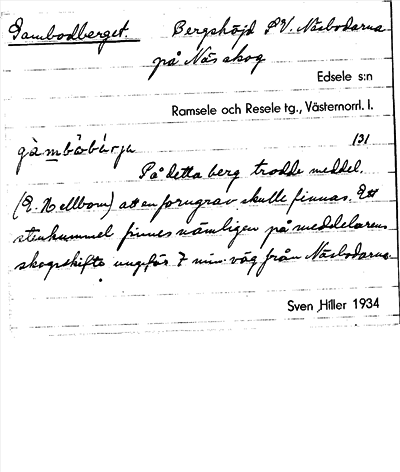 Gambodberget. Bergshöjd S.V. Näsbodarna
på Näs skog
Edsele s:n
Ramsele och Resele tg., Västernorrl. l.
131
På detta berg trodde meddel.
(E. Hellbom) att en forngrav skulle finnas. Ett
stenkummel finnes nämligen på meddelarens
skogsskifte ungefär 7 min. väg från Näsbodarna.
Sven Hiller 1934